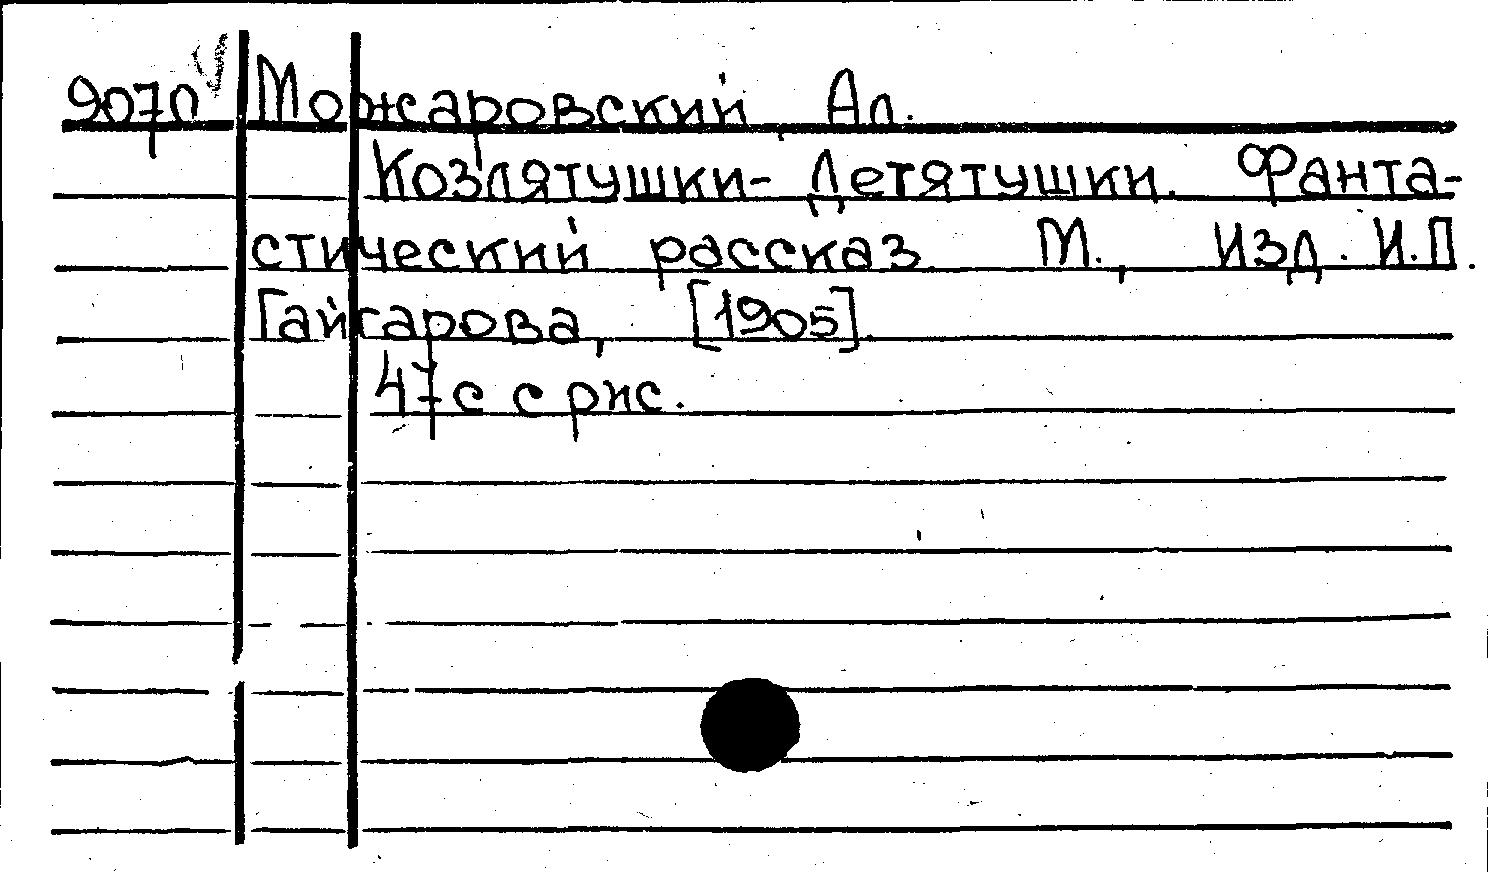 9070 Можаровский, Ал.
Козлятушки-Детятушки. Фанта-
стический рассказ М., Изд. И.П.
Гайгарова, [1905].
47 с с рис.